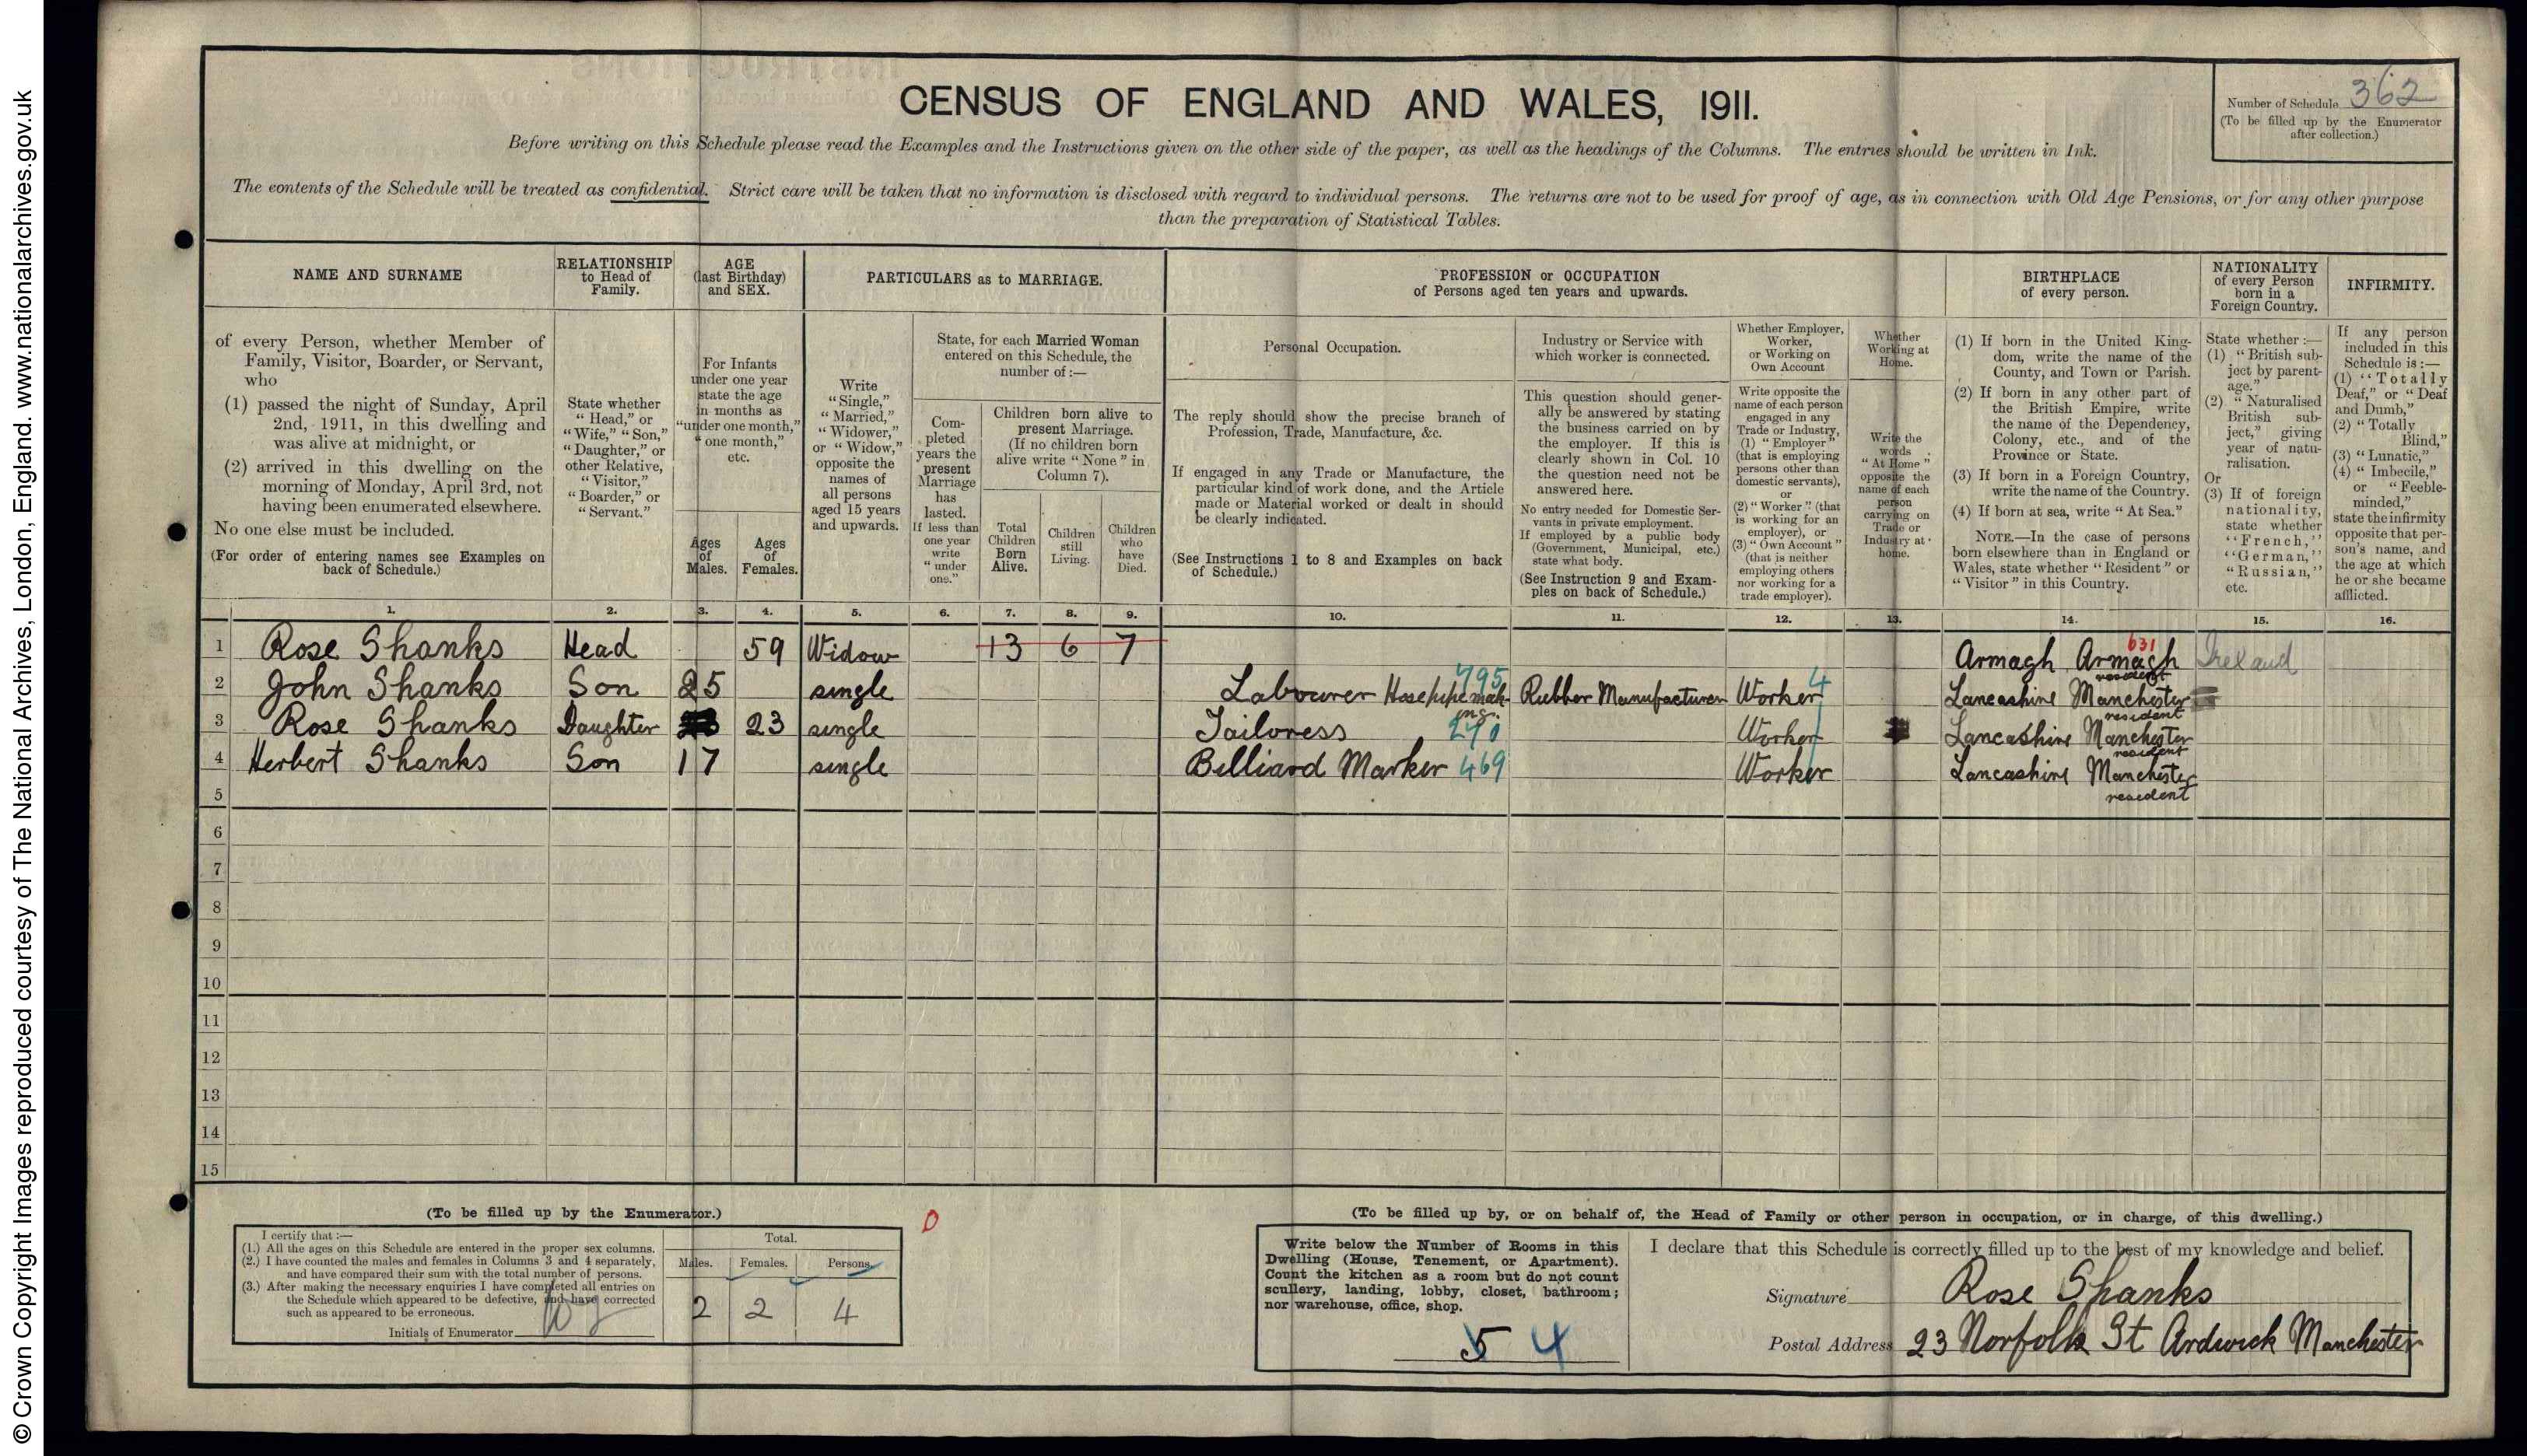 © Crown Copyright Images reproduced courtesy of The National Archives, London, England. www.nationalarchives.gov.uk
CENSUS OF ENGLAND AND WALES, 1911.
Number of Schedule 362
(To be filled up by the Enumerator
after collection.)
Before writing on this Schedule please read the Examples and the Instructions given on the other side of the paper, as well as the headings of the Columns. The entries should be written in Ink.
The contents of the Schedule will be treated as confidential. Strict care will be taken that no information is disclosed with regard to individual persons. The returns are not to be used for proof of age, as in connection with Old Age Pensions, or for any other purpose
than the preparation of Statistical Tables.
NAME AND SURNAME
of every Person, whether Member of
Family, Visitor, Boarder, or Servant,
who
(1) passed the night of Sunday, April
2nd, 1911, in this dwelling and
was alive at midnight, or
(2) arrived in this dwelling on the
morning of Monday, April 3rd, not
having been enumerated elsewhere.
No one else must be included.
(For order of entering names see Examples on
back of Schedule.)
RELATIONSHIP
to Head of
Family.
State whether
"Head," or
"Wife," "Son,"
"Daughter," or
other Relative,
"Visitor,"
"Boarder," or
"Servant."
AGE
(last Birthday)
and SEX.
For Infants
under one year
state the age
in months as
"under one month,"
"one month,"
etc.
Ages
of
Males.
Ages
of
Females.
PARTICULARS as to MARRIAGE.
Write
"Single,"
"Married,"
"Widower,"
or "Widow,"
opposite the
names of
all persons
aged 15 years
and upwards.
State, for each Married Woman
entered on this Schedule, the
number of :—
Com-
pleted
years the
present
Marriage
has
lasted.
If less than
one year
write
"under
one."
Children born alive to
present Marriage.
(If no children born
alive write "None" in
Column 7).
Total
Children
Born
Alive.
Children
still
Living.
Children
who
have
Died.
PROFESSION or OCCUPATION
of Persons aged ten years and upwards.
Personal Occupation.
The reply should show the precise branch of
Profession, Trade, Manufacture, &c.
If engaged in any Trade or Manufacture, the
particular kind of work done, and the Article
made or Material worked or dealt in should
be clearly indicated.
(See Instructions 1 to 8 and Examples on back
of Schedule.)
Industry or Service with
which worker is connected.
This question should gener-
ally be answered by stating
the business carried on by
the employer. If this is
clearly shown in Col. 10
the question need not be
answered here.
No entry needed for Domestic Ser-
vants in private employment.
If employed by a public body
(Government, Municipal, etc.)
state what body.
(See Instruction 9 and Exam-
ples on back of Schedule.)
Whether Employer,
Worker,
or Working on
Own Account
Write opposite the
name of each person
engaged in any
Trade or Industry,
(1) "Employer"
(that is employing
persons other than
domestic servants),
or
(2) "Worker" (that
is working for an
employer), or
(3) "Own Account"
(that is neither
employing others
nor working for a
trade employer).
Whether
Working at
Home.
Write the
words
"At Home"
opposite the
name of each
person
carrying on
Trade or
Industry at
home.
BIRTHPLACE
of every person.
(1) If born in the United King-
dom, write the name of the
County, and Town or Parish.
(2) If born in any other part of
the British Empire, write
the name of the Dependency,
Colony, etc., and of the
Province or State.
(3) If born in a Foreign Country,
write the name of the Country.
(4) If born at sea, write "At Sea."
NOTE.—In the case of persons
born elsewhere than in England or
Wales, state whether "Resident" or
"Visitor" in this Country.
NATIONALITY
of every Person
born in a
Foreign Country.
State whether :—
(1) "British sub-
ject by parent-
age."
(2) "Naturalised
British sub-
ject," giving
year of natu-
ralisation.
Or
(3) If of foreign
nationality,
state whether
"French,"
"German,"
"Russian,"
etc.
INFIRMITY.
If any person
included in this
Schedule is :—
(1) "Totally
Deaf," or "Deaf
and Dumb,"
(2) "Totally
Blind,"
(3) "Lunatic,"
(4) "Imbecile,"
or "Feeble-
minded,"
state the infirmity
opposite that per-
son's name, and
the age at which
he or she became
afflicted.
1. 2. 3. 4. 5. 6. 7. 8. 9. 10. 11. 12. 13. 14. 15. 16.
1 Rose Shanks Head 59 Widow 13 6 7 Armagh Armagh 631 Ireland
resident
2 John Shanks Son 25 single Labourer Hosepipe mak-ing. 795 Rubber Manufacturer Worker 4 Lancashire Manchester
resident
3 Rose Shanks Daughter 23 single Tailoress 290 Worker Lancashire Manchester
resident
4 Herbert Shanks Son 17 single Billiard Marker 469 Worker Lancashire Manchester
resident
5
6
7
8
9
10
11
12
13
14
15
(To be filled up by the Enumerator.)
I certify that :—
(1.) All the ages on this Schedule are entered in the proper sex columns.
(2.) I have counted the males and females in Columns 3 and 4 separately,
and have compared their sum with the total number of persons.
(3.) After making the necessary enquiries I have completed all entries on
the Schedule which appeared to be defective, and have corrected
such as appeared to be erroneous.
Initials of Enumerator
Total.
Males. Females. Persons.
2 2 4
(To be filled up by, or on behalf of, the Head of Family or other person in occupation, or in charge, of this dwelling.)
Write below the Number of Rooms in this
Dwelling (House, Tenement, or Apartment).
Count the kitchen as a room but do not count
scullery, landing, lobby, closet, bathroom;
nor warehouse, office, shop.
5 4
I declare that this Schedule is correctly filled up to the best of my knowledge and belief.
Signature Rose Shanks
Postal Address 23 Norfolk St Ardwick Manchester